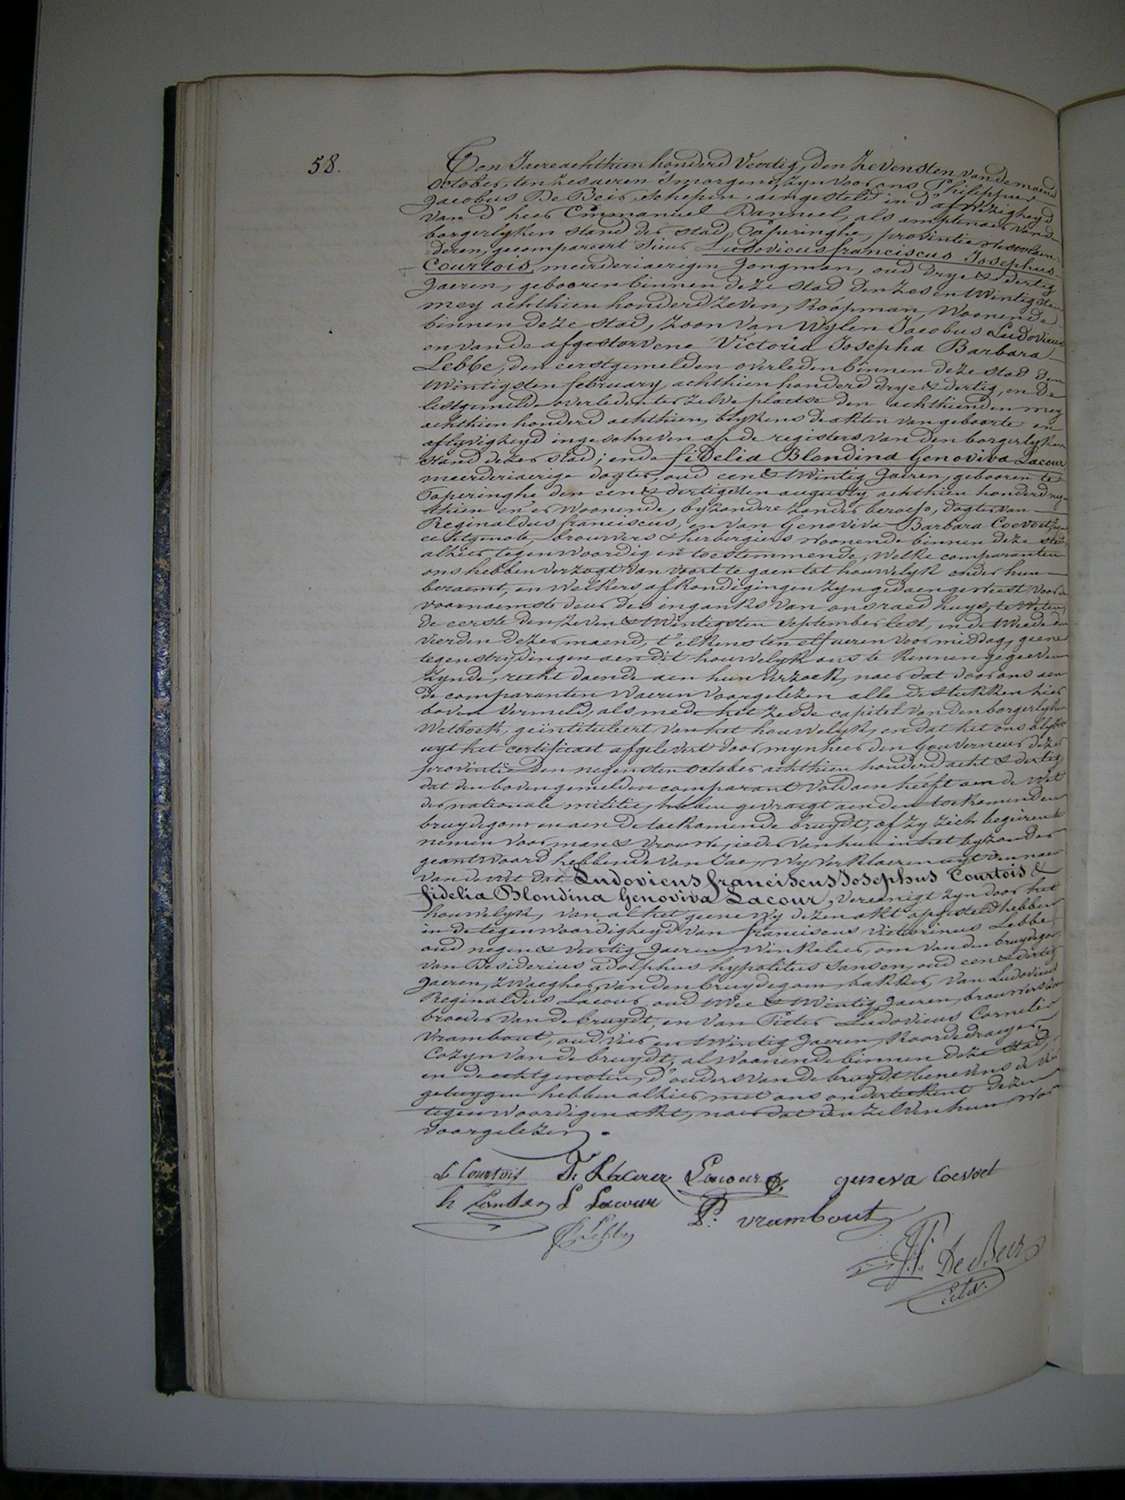 58.
Ten Jaere achthien honderd Veertig, den Zevensten van de maend
October, ten Zes ueren s'morgens, zyn voor ons Philippus
Jacobus De Beir, schepen, aengesteld in d'afwezigheyd
van d'heer Emmanuel Vanmerl, als amptenaer van de
borgerlyken stand der stad Poperinghe, provintie Westvlaen-
deren, gecompareert Sieur Ludovicus franciscus Josephus
Courtois, meerderiaerigen jongman, oud drye & dertig
Jaeren, gebooren binnen deze stad den Zes en twintigsten
mey achthien honderd zeven, Koopman, Woonende
binnen deze stad, Zoon van Wylen Jacobus Ludovicus
en van de afgestorvene Victoria Josepha Barbara
Lebbe, den eerstgemelden overleden binnen deze stad den
twintigsten february achthien honderd drye & dertig, en de
lestgemelde overleden ter zelve plaetse den achthienden mey
achthien honderd achthien, blykens de akten van geboorte en
aflyvigheyd ingeschreven op de registers van den borgerlyken
stand dezer stad; ende fidelia Blondina Genoviva Lacour
meerderiaerige dogter, oud een & twintig Jaeren, gebooren te
Poperinghe den een & dertigsten augusty achthien honderd
thien en er Woonende, byzondere zonder beroep, dogter van
Reginaldus franciscus, en van Genoviva Barbara Coevoet
echtgenoten brouwers & herbergiers Woonende binnen deze stad
alhier tegenwoordig en toestemmende, Welke comparanten
ons hebben verzogt van voort te gaen tot houwelyk onder hun
beraemt, en Welkers afkondigingen zyn gedaen geweest voor de
voornaemste deur des ingangs van ons raedhuys, te Weten
de eerste den zeven & twintigsten September lest, en de twede den
vierden dezer maend, t'elkens ten elf ueren voormiddag, geene
tegenstrydingen aen dit houwelyk ons te kennen gegeeven
zynde, recht doende aen hun verzoek, naer dat door ons aen
de comparanten Waeren voorgelezen alle de stukken hier
boven vermeld, als mede het zesde capitel van den borgerlyken
Wetboek, geintituleert van het houwelyk, en dat het ons blykt
uyt het certificaet afgelevert door mynheer den Gouverneur dezer
provintie den negensten October achthien honderd acht & dertig
dat den bovengemelden comparant voldaen heeft aen de Wet
der nationale militie, hebben gevraegt aen den toekomenden
bruydegom en aen de toekomende bruydt, of zy zich begeiren te
nemen voor man & vrouw, ieder van hun in het byzonder
geantwoord hebbende van Jae; Wy verklaeren uyt den naem
van de wet dat Ludovicus franciscus Josephus Courtois &
fidelia Blondina Genoviva Lacour, vereenigt zyn door het
houwelyk, van al het geene wy dezen akt opgesteld hebben
in de tegenwoordigheyd van franciscus Victorinus Lebbe,
oud negen & veertig Jaeren, Winkelier, om van den bruydegom
van Desiderius adolphus hypolitus Sansen, oud een & dertig
Jaeren, zwaegher van den bruydegom, bakker, van Ludovicus
Reginaldus Lacour, oud twee & twintig Jaeren, brouwers zoon
broeder van de bruydt, en van Pieter Ludovicus Cornelis
Vrambout, oud vier en twintig Jaeren,
Cozyn van de bruydt, al Woonende binnen deze stad,
en de echtgenoten, d'ouders van de bruydt benevens de vier
getuygen hebben alhier met ons onderteekent dezen
tegenwoordigen akt, naer dat den zelven hun was
voorgelezen.
L. Courtois F. Lacour Lacour geneva Coevoet
L Lacour P. L. vrambout
Lebbe
P. J. De Beir